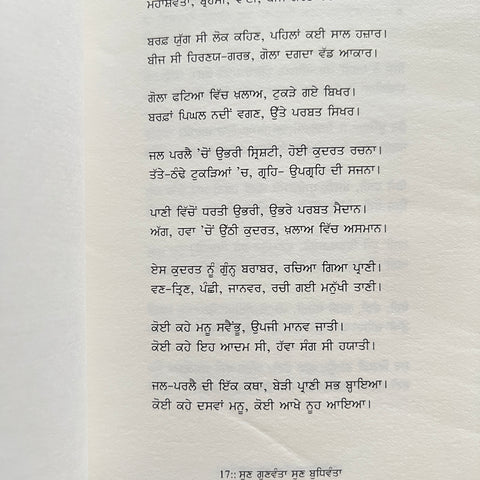 ਮਹਾਸ਼ਵੇਤਾ,
ਬਰਫ਼ ਯੁੱਗ ਸੀ ਲੋਕ ਕਹਿਣ, ਪਹਿਲਾਂ ਕਈ ਸਾਲ ਹਜ਼ਾਰ।
ਬੀਜ ਸੀ ਹਿਰਣਯ-ਗਰਭ, ਗੋਲਾ ਦਗਦਾ ਵੱਡ ਆਕਾਰ।
ਗੋਲਾ ਫਟਿਆ ਵਿੱਚ ਖ਼ਲਾਅ, ਟੁਕੜੇ ਗਏ ਬਿਖਰ।
ਬਰਫ਼ਾਂ ਪਿਘਲ ਨਦੀਂ ਵਗਣ, ਉੱਤੇ ਪਰਬਤ ਸਿਖਰ।
ਜਲ ਪਰਲੈ 'ਚੋਂ ਉਭਰੀ ਸ੍ਰਿਸ਼ਟੀ, ਹੋਈ ਕੁਦਰਤ ਰਚਨਾ।
ਤੱਤੇ-ਠੰਢੇ ਟੁਕੜਿਆਂ 'ਚ, ਗ੍ਰਹਿ- ਉਪਗ੍ਰਹਿ ਦੀ ਸਜਨਾ।
ਪਾਣੀ ਵਿੱਚੋਂ ਧਰਤੀ ਉਭਰੀ, ਉਭਰੇ ਪਰਬਤ ਮੈਦਾਨ।
ਅੱਗ, ਹਵਾ 'ਚੋਂ ਉੱਠੀ ਕੁਦਰਤ, ਖ਼ਲਾਅ ਵਿੱਚ ਅਸਮਾਨ।
ਏਸ ਕੁਦਰਤ ਨੂੰ ਗੁੰਨ੍ਹ ਬਰਾਬਰ, ਰਚਿਆ ਗਿਆ ਪ੍ਰਾਣੀ।
ਵਣ-ਤ੍ਰਿਣ, ਪੰਛੀ, ਜਾਨਵਰ, ਰਚੀ ਗਈ ਮਨੁੱਖੀ ਤਾਣੀ।
ਕੋਈ ਕਹੇ ਮਨੂ ਸਵੈਂਭੂ, ਉਪਜੀ ਮਾਨਵ ਜਾਤੀ।
ਕੋਈ ਕਹੇ ਇਹ ਆਦਮ ਸੀ, ਹੱਵਾ ਸੰਗ ਸੀ ਹਯਾਤੀ।
ਜਲ-ਪਰਲੈ ਦੀ ਇੱਕ ਕਥਾ, ਬੇੜੀ ਪ੍ਰਾਣੀ ਸਭ ਬ੍ਹਾਇਆ।
ਕੋਈ ਕਹੇ ਦਸਵਾਂ ਮਨੂ, ਕੋਈ ਆਖੇ ਨੂਹ ਆਇਆ।
17:: ਸੁਣ ਗੁਣਵੰਤਾ ਸੁਣ ਬੁਧਿਵੰਤਾ